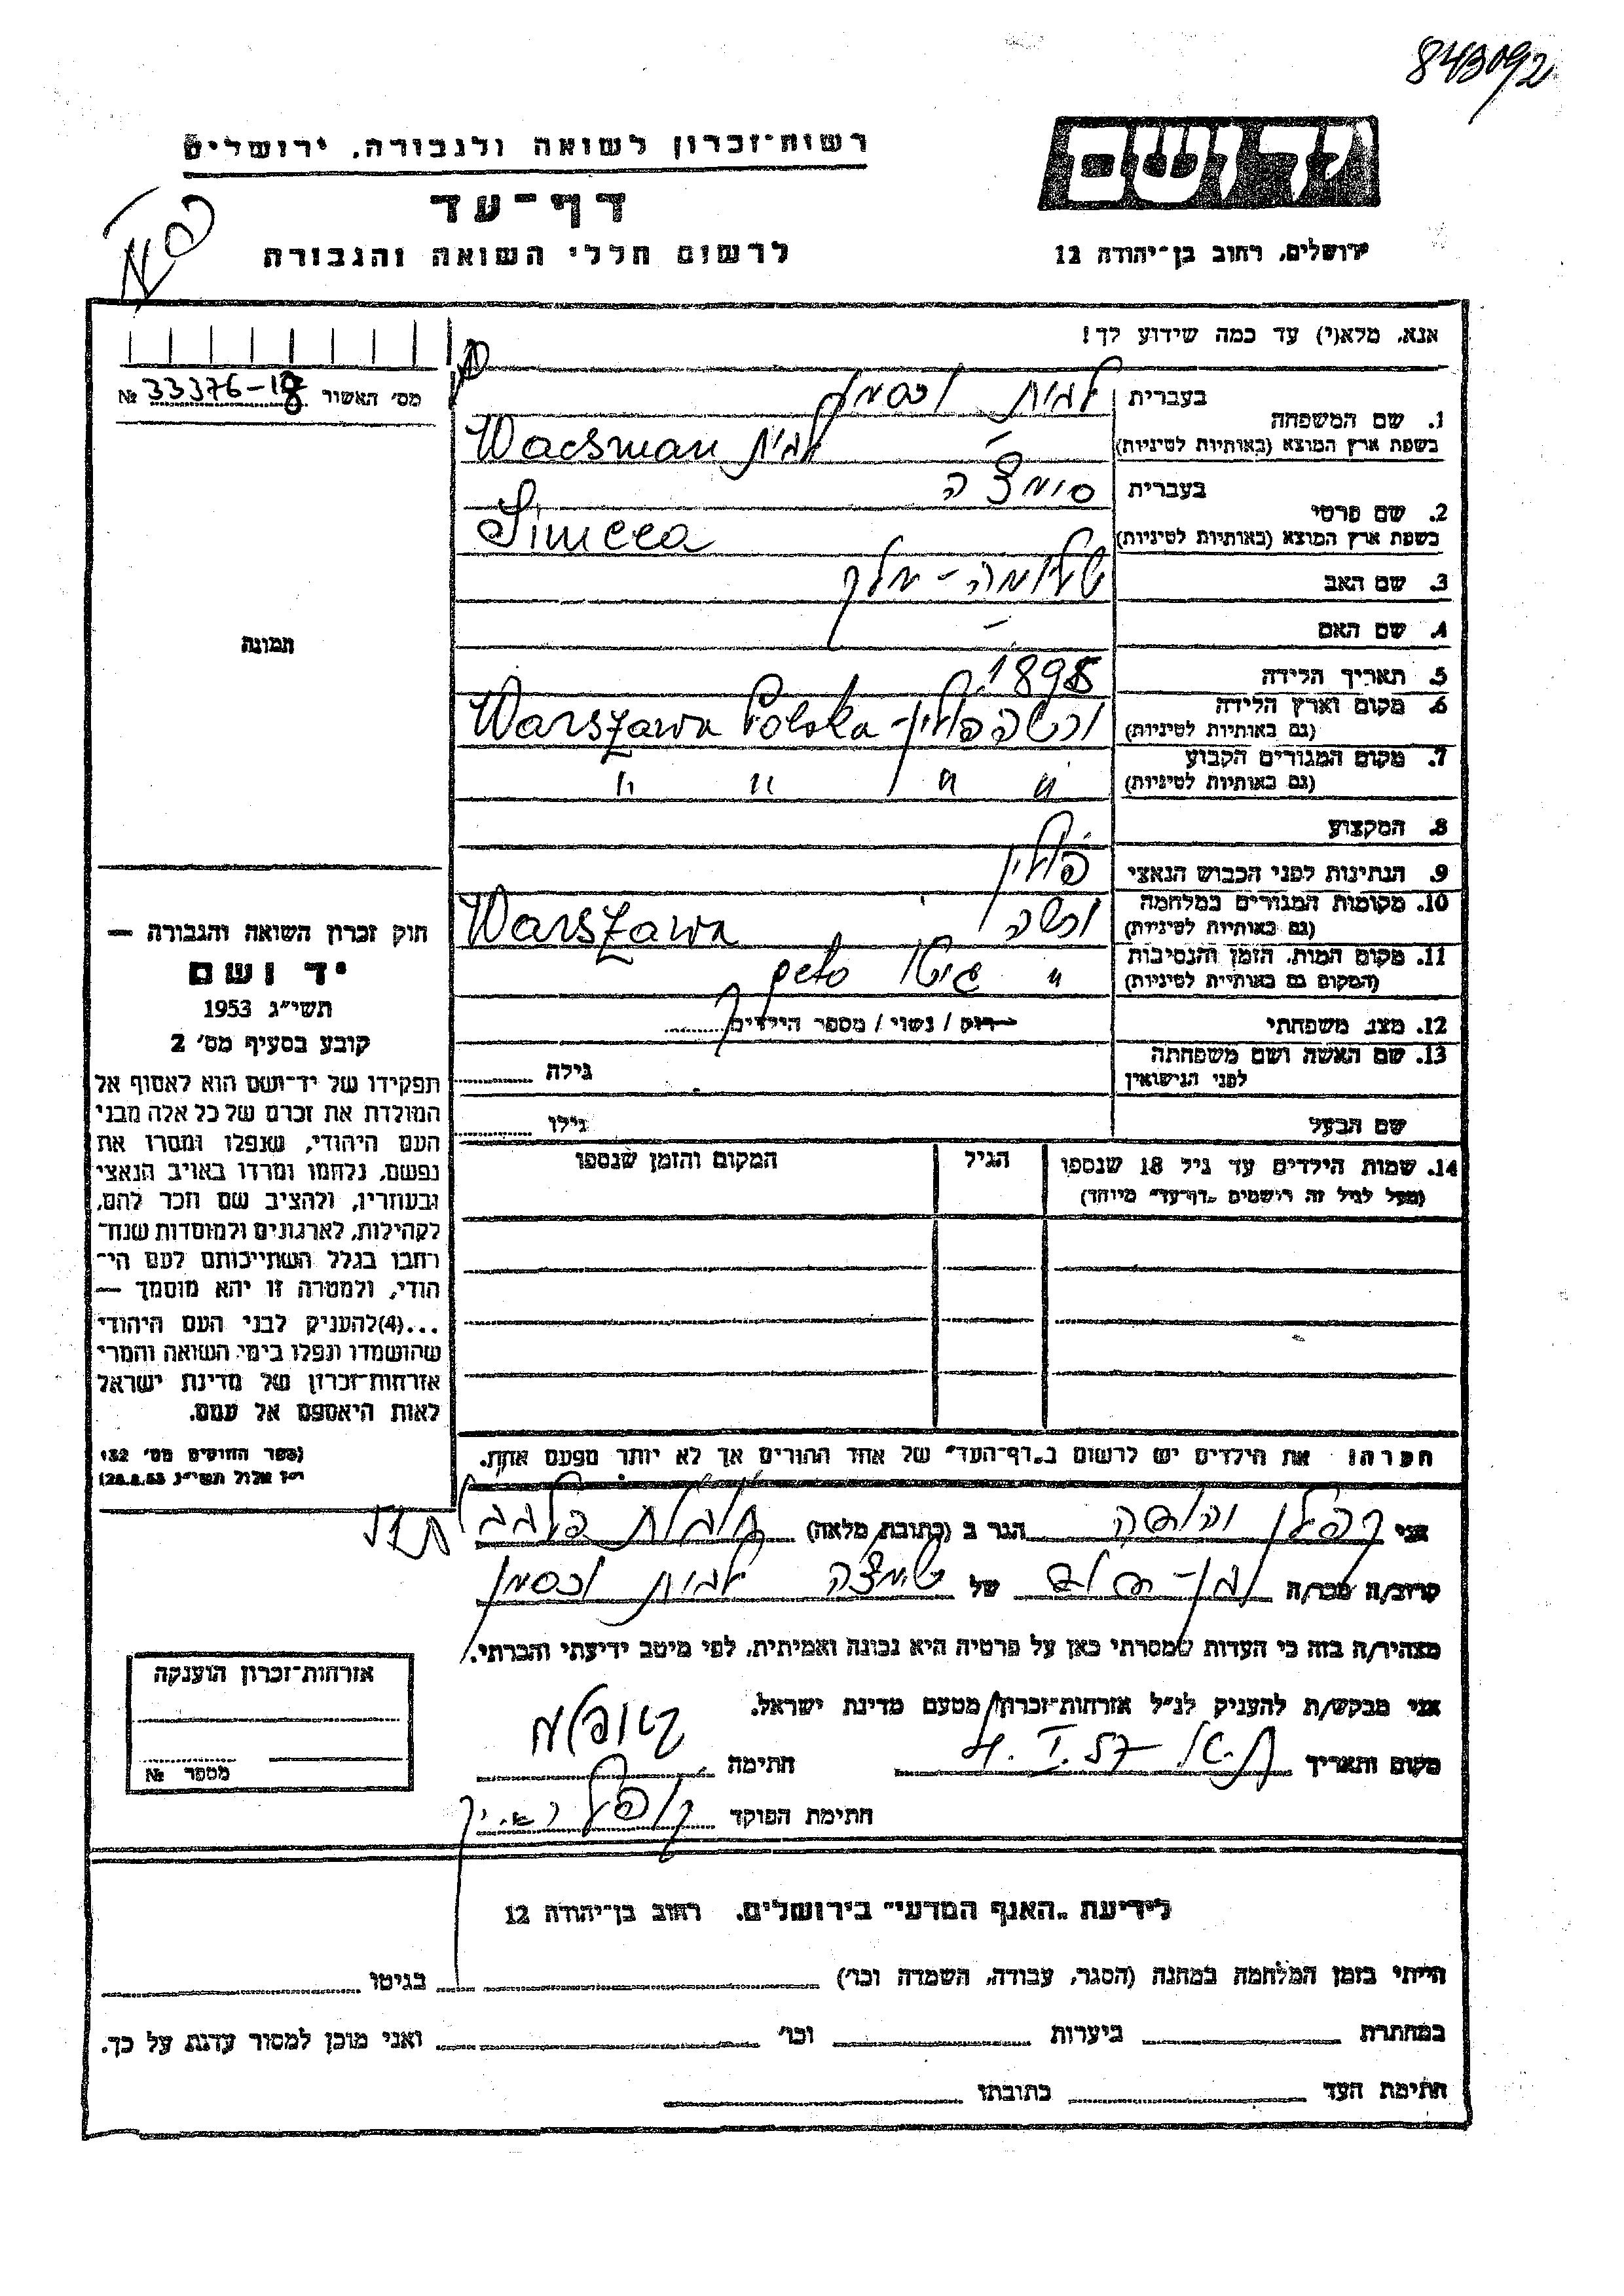 843092
רשות-זכרון לשואה ולגבורה, ירושלים
יד ושם
דף-עד
לרשום חללי השואה והגבורה
ירושלים, רחוב בן-יהודה 12
אנא, מלא(י) עד כמה שידוע לך!
מס' האשור № 33376-18
1. שם המשפחה
בעברית לבית וכסמן
בשפת ארץ המוצא (באותיות לטיניות) לבית Wacsman
2. שם פרטי
בעברית סימצה
בשפת ארץ המוצא (באותיות לטיניות) Simcea
3. שם האב שלומה-מלך
4. שם האם –
תמונה
5. תאריך הלידה 1898
6. מקום וארץ הלידה (גם באותיות לטיניות) ורשה פולין- Warszawa Polska
7. מקום המגורים הקבוע (גם באותיות לטיניות) " " " "
8. המקצוע
9. הנתינות לפני הכבוש הנאצי פולין
10. מקומות המגורים במלחמה (גם באותיות לטיניות) ורשה Warszawa
11. מקום המות, הזמן והנסיבות (המקום גם באותיות לטיניות) " גיטו geto
12. מצב משפחתי רוק / נשוי / מספר הילדים
13. שם האשה ושם משפחתה לפני הנישואין
גילה
שם הבעל
גילו
14. שמות הילדים עד גיל 18 שנספו
(מעל לגיל זה רושמים "דף-עד" מיוחד)
הגיל
המקום והזמן שנספו
חוק זכרון השואה והגבורה —
יד ושם
תשי"ג 1953
קובע בסעיף מס' 2
תפקידו של יד-ושם הוא לאסוף אל
המולדת את זכרם של כל אלה מבני
העם היהודי, שנפלו ומסרו את
נפשם, נלחמו ומרדו באויב הנאצי
ובעוזריו, ולהציב שם וזכר להם,
לקהילות, לארגונים ולמוסדות שנח-
רבו בגלל השתייכותם לעם הי-
הודי, ולמטרה זו יהא מוסמך —
...(4)להעניק לבני העם היהודי
שהושמדו ונפלו בימי השואה והמרי
אזרחות-זכרון של מדינת ישראל
לאות היאספם אל עמם.
(ספר החוקים מס' 132
י"ז אלול תשי"ג 28.8.53)
הערה: את הילדים יש לרשום ב"דף-העד" של אחד ההורים אך לא יותר מפעם אחת.
אני הגר ב (כתובת מלאה)
קרוב/ה מכר/ה של סימצה לבית וכסמן
מצהיר/ה בזה כי העדות שמסרתי כאן על פרטיה היא נכונה ואמיתית, לפי מיטב ידיעתי והכרתי.
אני מבקש/ת להעניק לנ"ל אזרחות-זכרון מטעם מדינת ישראל.
מקום ותאריך ת"א 4.I.57 חתימה
חתימת הפוקד
אזרחות-זכרון הוענקה
מספר №
לידיעת "האגף המדעי" בירושלים, רחוב בן-יהודה 12
הייתי בזמן המלחמה במחנה (הסגר, עבודה, השמדה וכו') בגיטו
במחתרת ביערות וכו' ואני מוכן למסור עדות על כך.
חתימת העד כתובתו